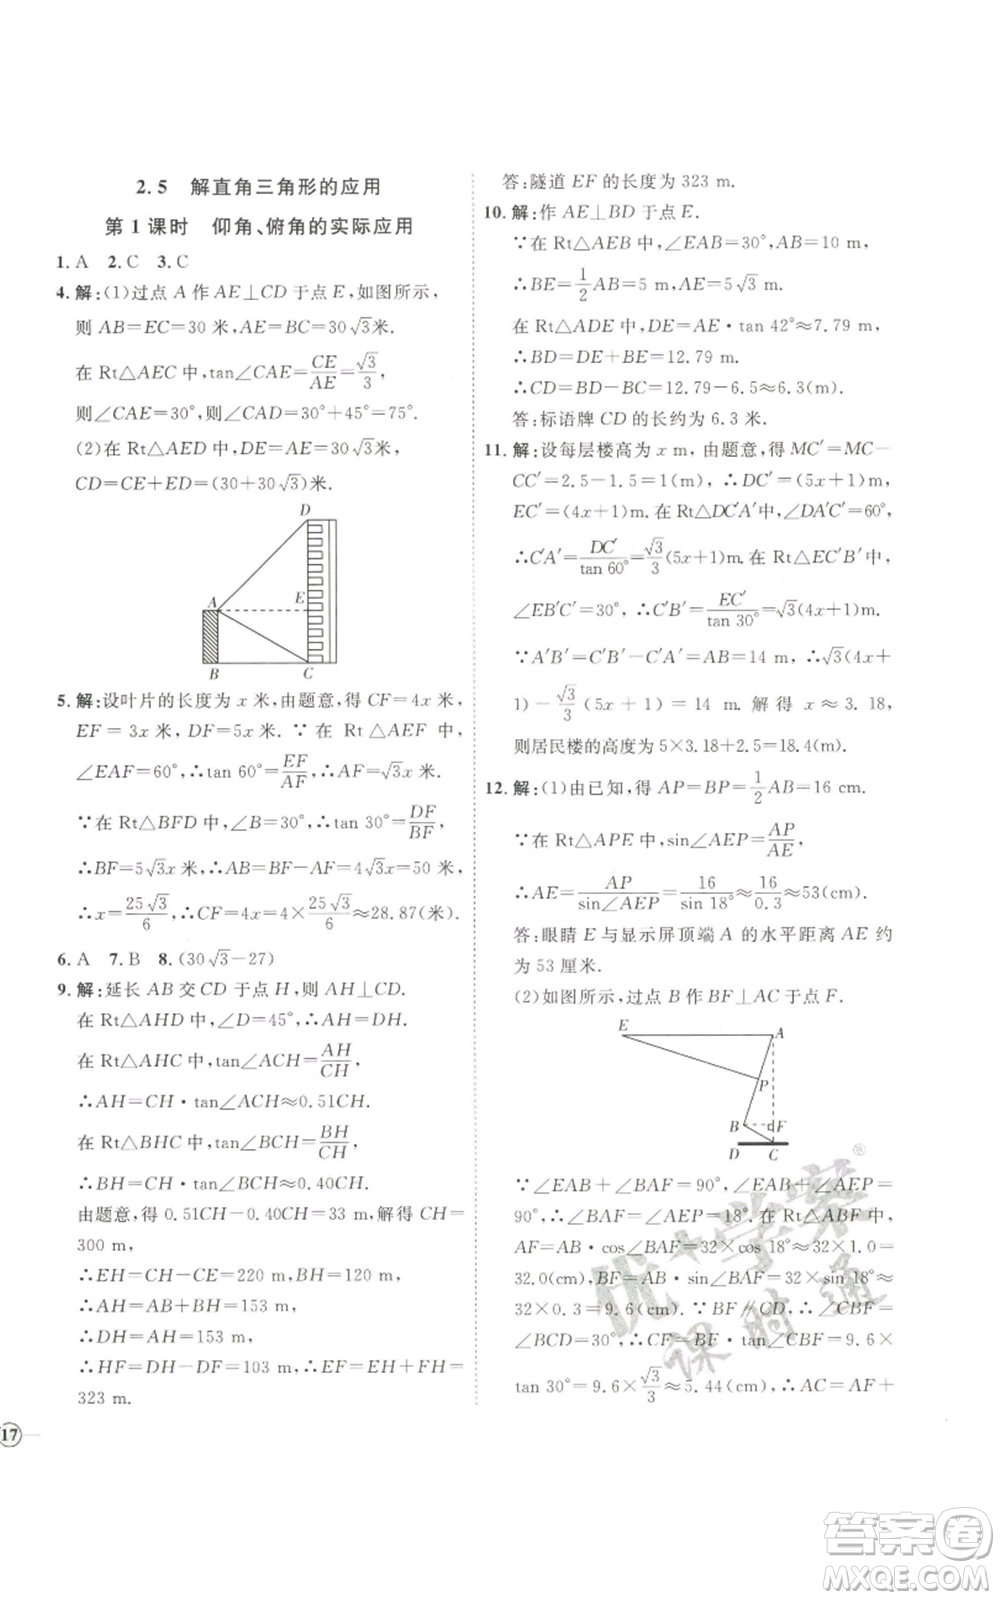 2.5 解直角三角形的应用
第1课时 仰角、俯角的实际应用
1. A 2. C 3. C
4. 解:(1)过点 A 作 AE⊥CD 于点 E,如图所示,
则 AB=EC=30 米,AE=BC=30√3米.
在 Rt△AEC 中,tan∠CAE=CE/AE=√3/3,
则∠CAE=30°,则∠CAD=30°+45°=75°.
(2)在 Rt△AED 中,DE=AE=30√3米,
CD=CE+ED=(30+30√3)米.
D
A
E
B
C
5. 解:设叶片的长度为 x 米,由题意,得 CF=4x 米,
EF=3x 米,DF=5x 米. ∵在 Rt△AEF 中,
∠EAF=60°,∴tan 60°=EF/AF,∴AF=√3x米.
∵在 Rt△BFD 中,∠B=30°,∴tan 30°=DF/BF,
∴BF=5√3x 米,∴AB=BF-AF=4√3x=50 米,
∴x=25√3/6,∴CF=4x=4×25√3/6≈28.87(米).
6. A 7. B 8. (30√3-27)
9. 解:延长 AB 交 CD 于点 H,则 AH⊥CD.
在 Rt△AHD 中,∠D=45°,∴AH=DH.
在 Rt△AHC 中,tan∠ACH=AH/CH,
∴AH=CH·tan∠ACH≈0.51CH.
在 Rt△BHC 中,tan∠BCH=BH/CH,
∴BH=CH·tan∠BCH≈0.4CH.
由题意,得 0.51CH-0.40CH=33 m,解得 CH=
300 m,
∴EH=CH-CE=220 m,BH=120 m,
∴AH=AB+BH=153 m,
∴DH=AH=153 m,
∴HF=DH-DF=50 m,∴EF=EH+FH=
323 m.
17
答:隧道 EF 的长度为 323 m.
10. 解:作 AE⊥BD 于点 E.
∵在 Rt△AEB 中,∠EAB=30°,AB=10 m,
∴BE=1/2AB=5 m,AE=5√3 m.
在 Rt△ADE 中,DE=AE·tan 42°≈7.79 m,
∴BD=DE+BE=12.79 m,
∴CD=BD-BC=12.79-6.5≈6.3(m).
答:标语牌 CD 的长约为 6.3 米.
11. 解:设每层楼高为 x m,由题意,得 MC′=MC-
CC′=2.5-1.5=1(m),∴DC′=(5x+1)m,
EC′=(4x+1)m. 在 Rt△DC′A′中,∠DA′C′=60°,
∴C′A′=DC′/tan 60°=√3/3(5x+1)m. 在 Rt△EC′B′中,
∠EB′C′=30°,∴C′B′=EC′/tan 30°=√3(4x+1)m.
∵A′B′=C′B′-C′A′=AB=14 m,∴√3(4x+
1)-√3/3(5x+1)=14 m. 解得 x≈3.18,
则居民楼的高度为 5×3.18+2.5=18.4(m).
12. 解:(1)由已知,得 AP=BP=1/2AB=16 cm.
∵在 Rt△APE 中,sin∠AEP=AP/AE,
∴AE=AP/sin∠AEP=16/sin 18°≈16/0.3≈53(cm).
答:眼睛 E 与显示屏顶端 A 的水平距离 AE 约
为 53 厘米.
(2)如图所示,过点 B 作 BF⊥AC 于点 F.
E
A
P
B
F
D
C
∵∠EAB+∠BAF=90°,∠EAB+∠AEP=
90°,∴∠BAF=∠AEP=18°. 在 Rt△ABF 中,
AF=AB·cos∠BAF=32×cos 18°≈32×1.0≈
32.0(cm),BF=AB·sin∠BAF=32×sin 18°≈
32×0.3≈9.6(cm). ∵BF∥CD,∴∠CBF=
∠BCD=30°,∴CF=BF·tan∠CBF=9.6×
tan 30°=9.6×√3/3≈5.44(cm),∴AC=AF+
优+学案
课时通
答案卷
www.1010jiajiao.com